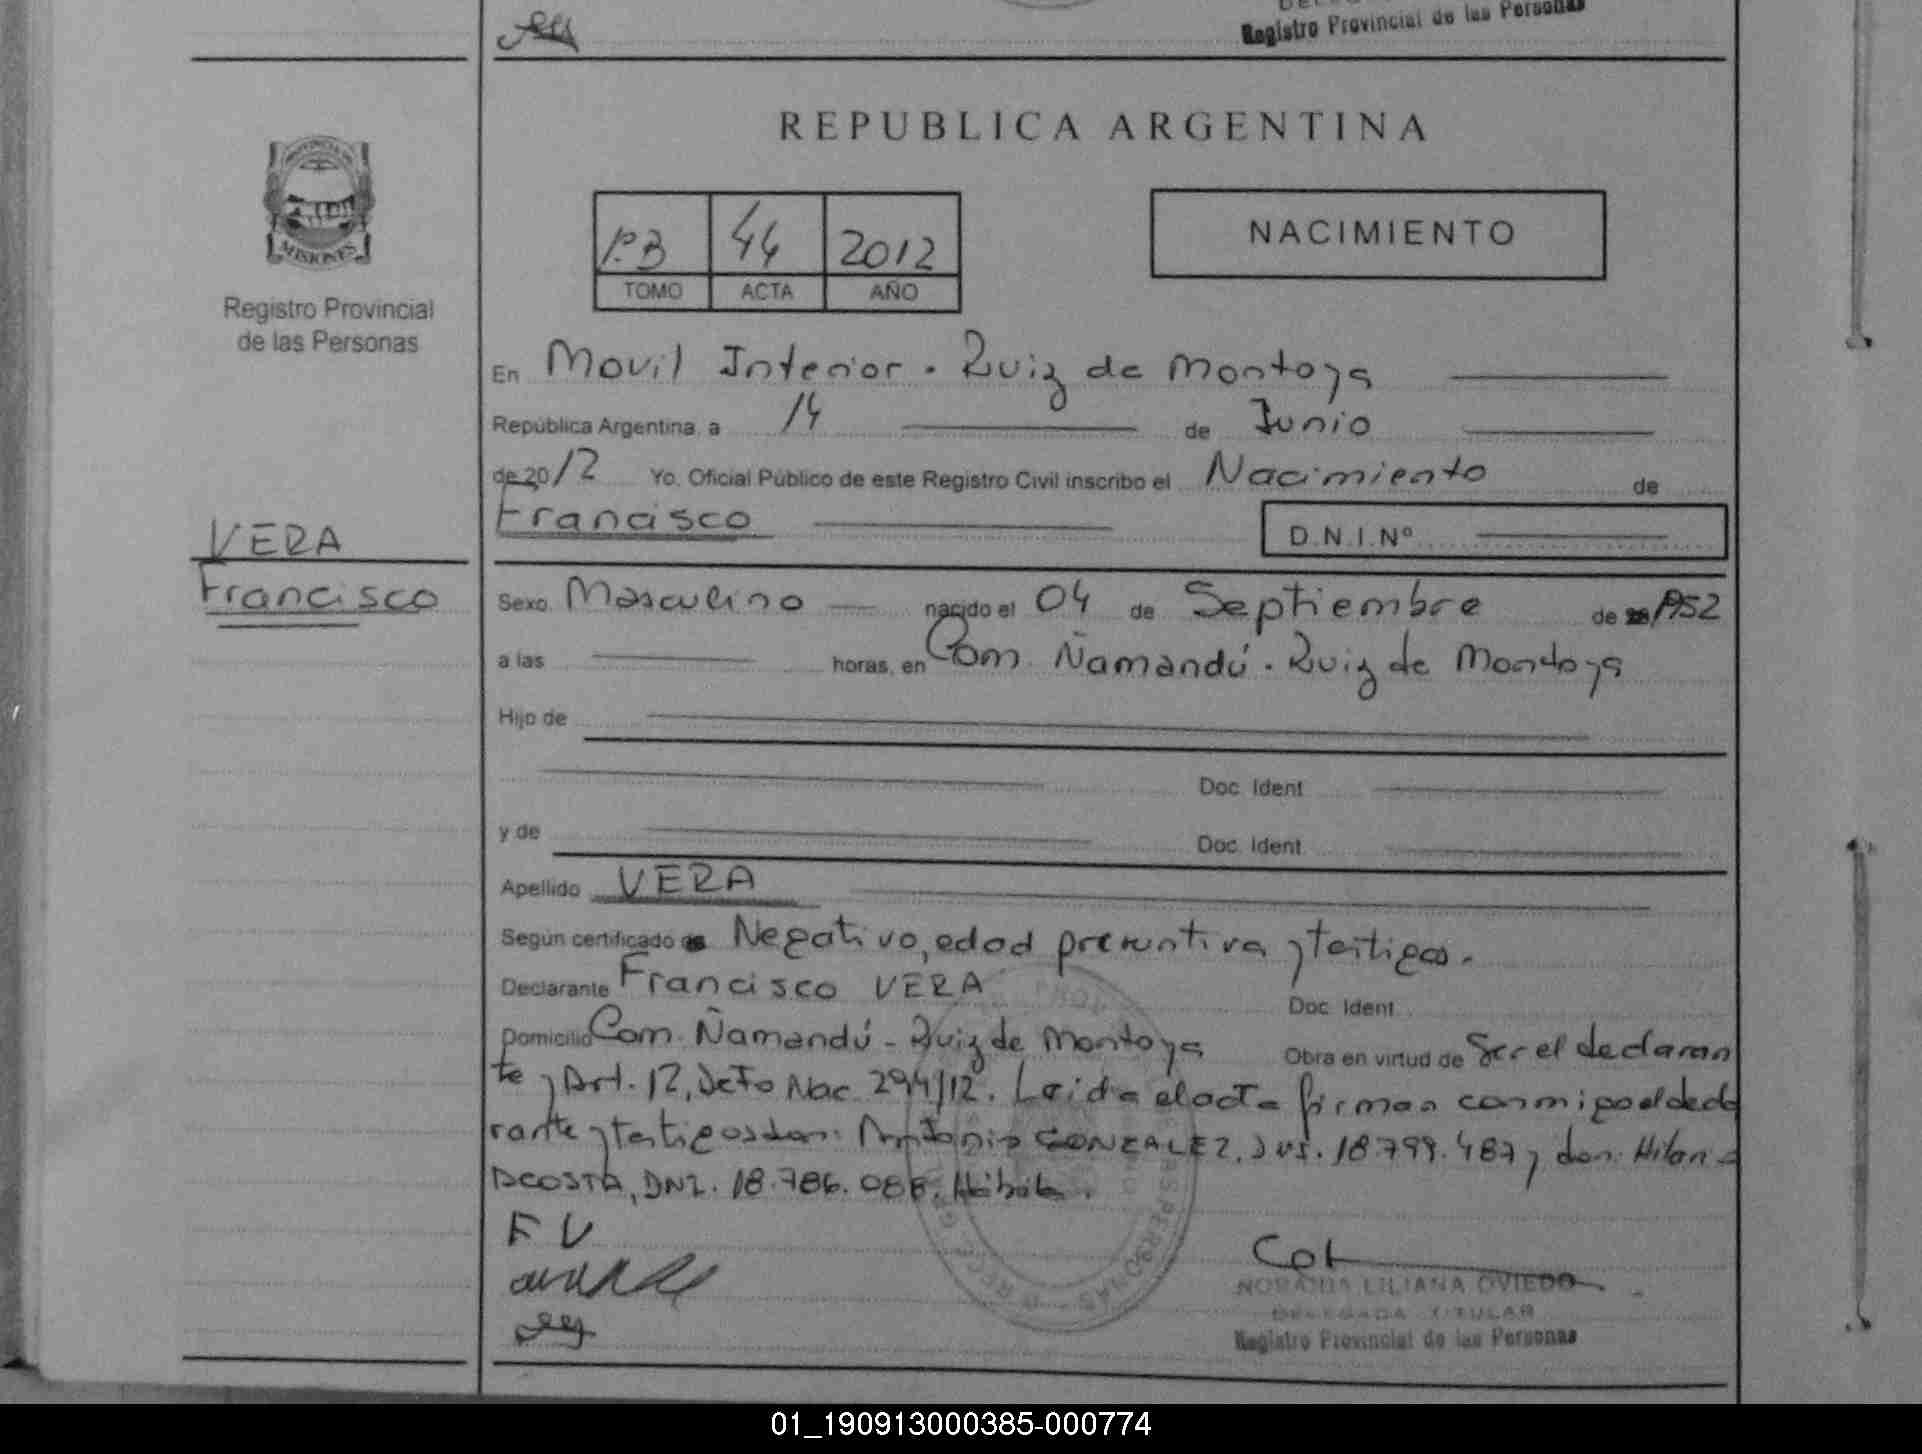 Registro Provincial de las Personas
REPUBLICA ARGENTINA
PROVINCIA DE
MISIONES
Registro Provincial
de las Personas
P.B 44 2012
TOMO ACTA AÑO
NACIMIENTO
En Movil Interior. Ruiz de Montoya
República Argentina, a 14 de Junio
de 2012 Yo, Oficial Público de este Registro Civil inscribo el Nacimiento de
Francisco D.N.I.Nº
VERA
Francisco
Sexo Masculino nacido el 04 de Septiembre de 1952
a las horas, en Com. Ñamandú. Ruiz de Montoya
Hijo de
Doc. Ident
y de Doc. Ident
Apellido VERA
Según certificado Negativo, edad presuntiva y testigos.
Declarante Francisco VERA Doc. Ident
Domicilio Com. Ñamandú - Ruiz de Montoya Obra en virtud de Ser el declaran
te y Art. 12, Dcto Nac. 294/12. Leida el acta firman conmigo el decla
rante y testigos don: Antonio GONZALEZ, 18.799.487 y don: Hilario
ACOSTA, DNI. 18.786.088.
F V
NORAIDA LILIANA OVIEDO
DELEGADA TITULAR
Registro Provincial de las Personas
01_190913000385-000774